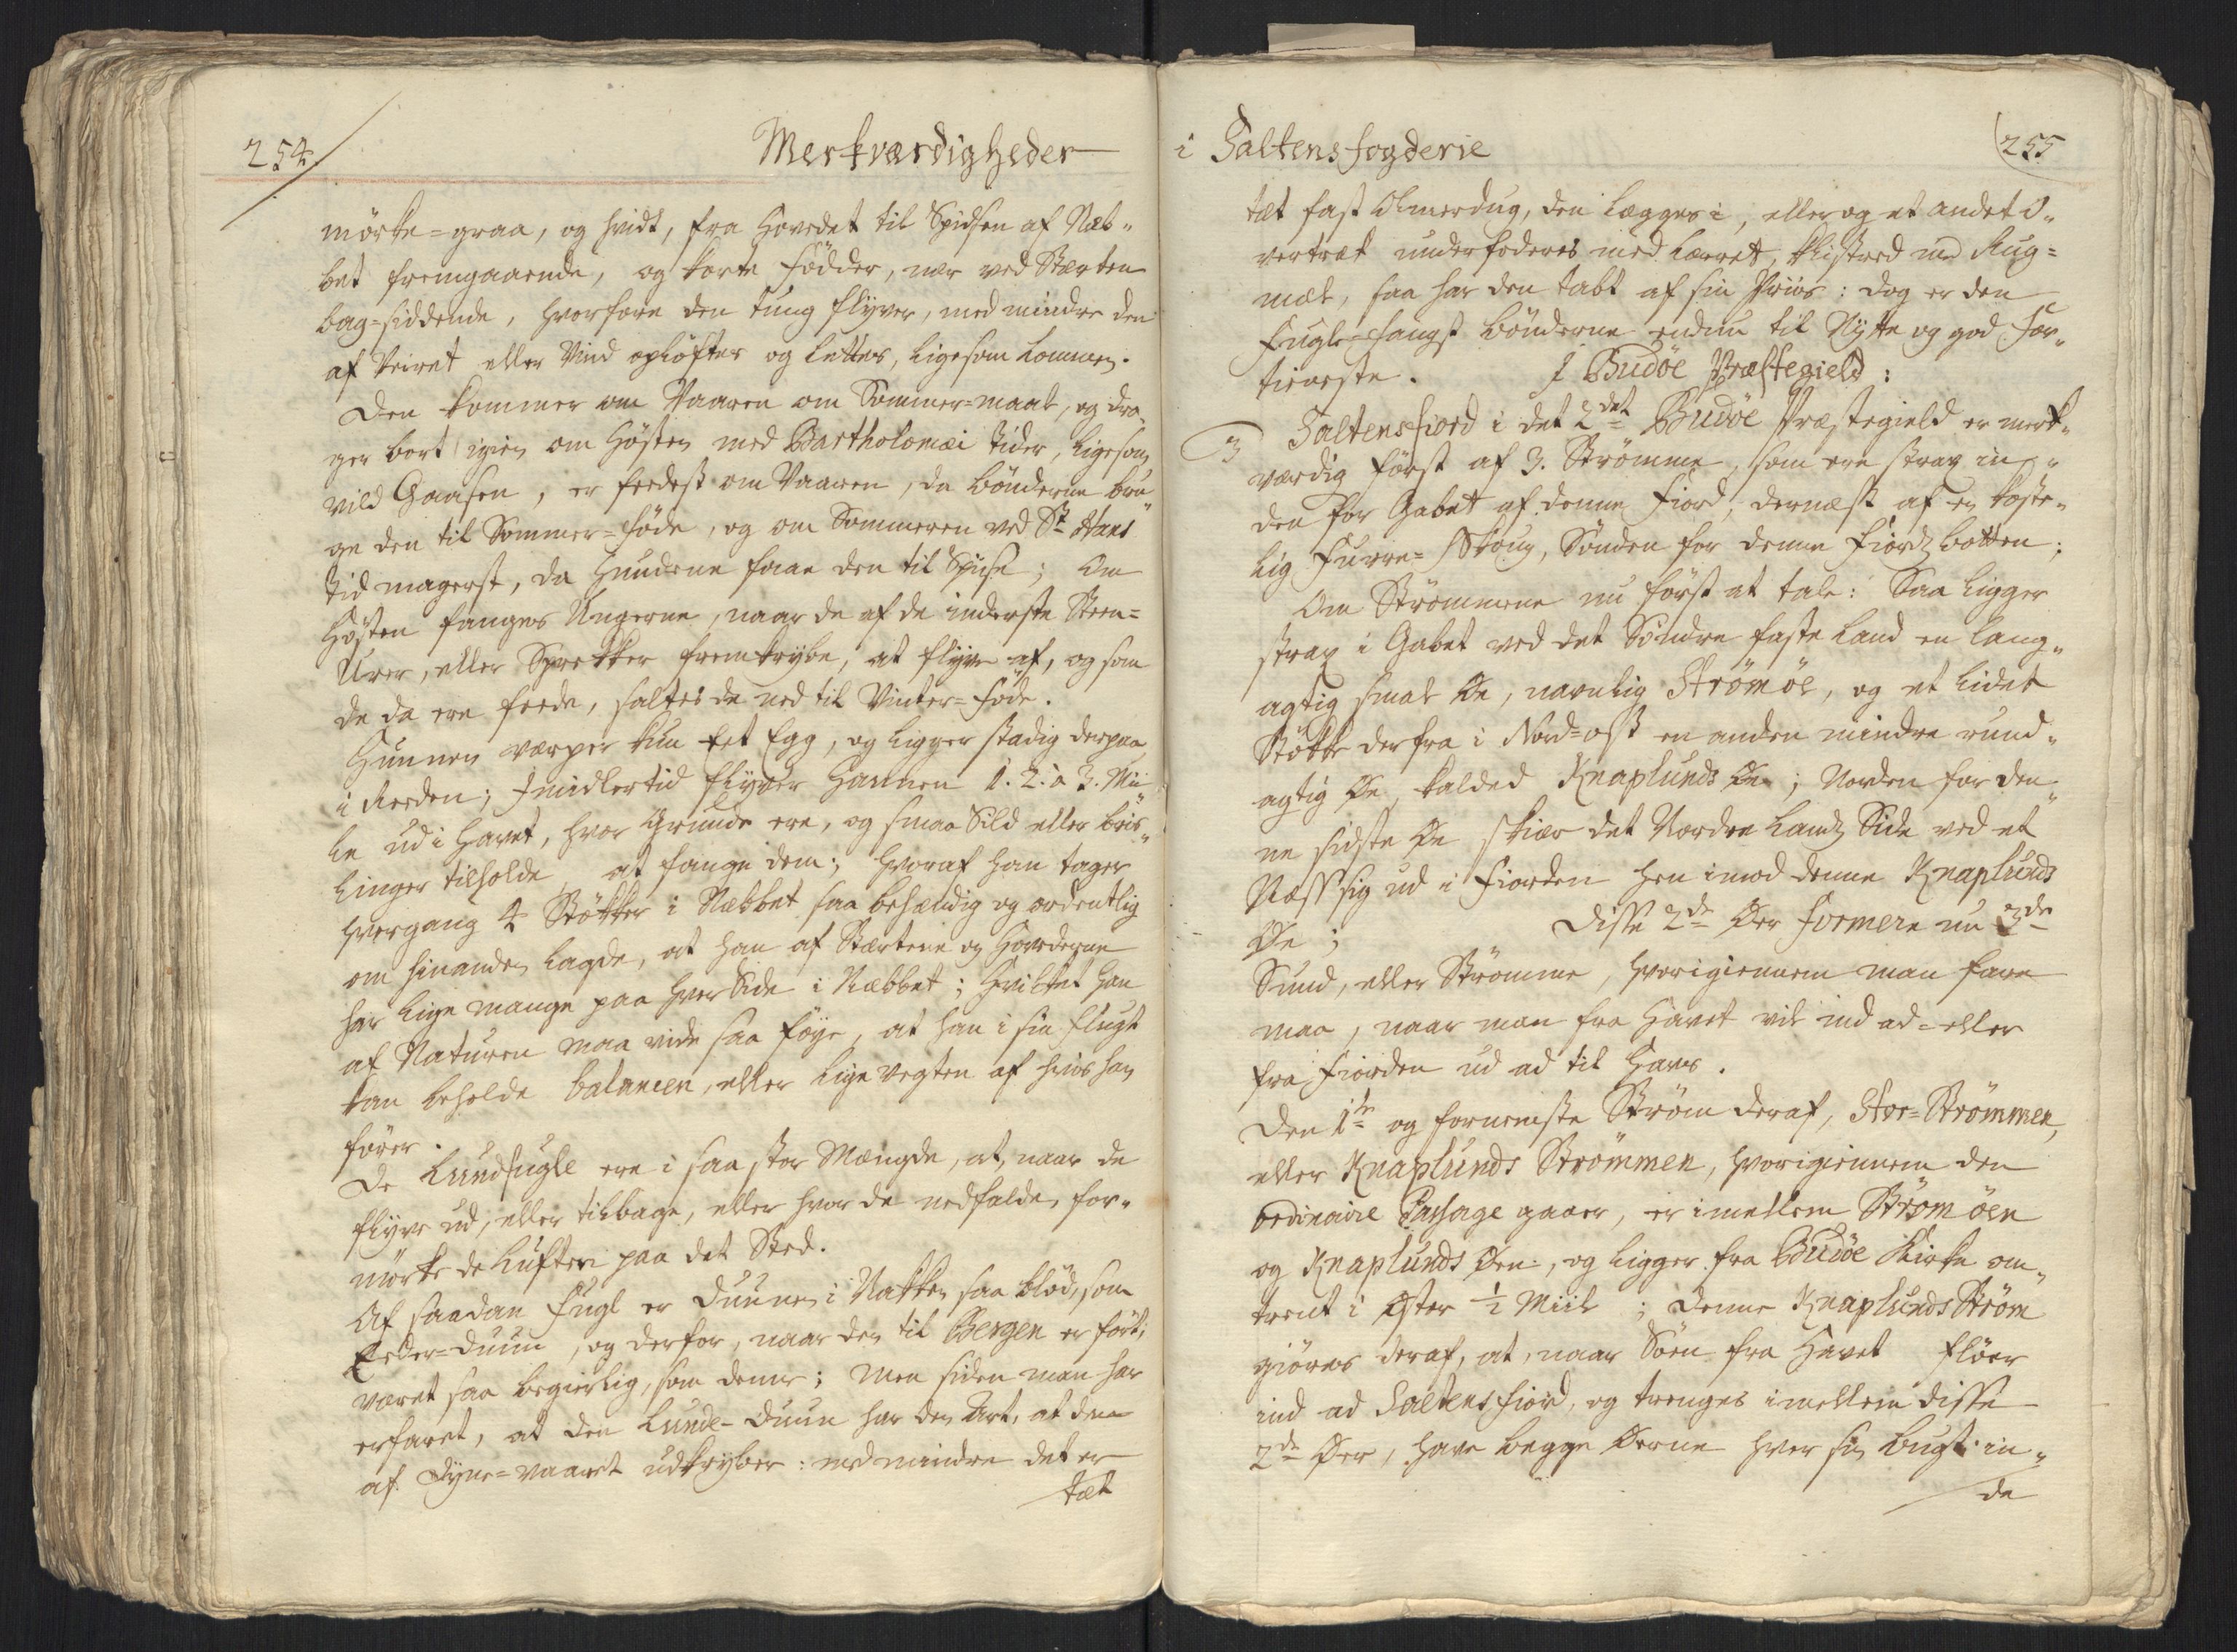 254
Merkværdigheder
mörke=graa, og hvidt, fra Hovedet til Spidsen af Neb„
bet fremgaaende, og korte Födder, nær ved Stærten
bag=siddende, hvorfore den tung flyver, med mindre den
af Veiret eller Vind oplöftes og lettes, ligesom Lommen.
Den kommer om Vaaren om Sommer=maal, og dra„
ger bort igien om Hösten med Bartholomæi tider, ligesom
vild Gaasen, er feedest om Vaaren, da Bönderne bru„
ge den til Sommer=föde, og om Sommeren ved St Hans
tid magerst, da Hundene faae den til Spise; Om
Hösten fanges Ungerne, naar de af de inderste Steen=
Urer, eller Sprekker fremkrybe, at flyve af, og som
de da ere feede, saltes de ned til Vinter=föde.
Hunnen værper kun Eet Egg, og ligger stadig derpaa
i Reeden; Imidlertid flyver Hannen 1. 2. à 3. Mii„
le ud i Havet, hvor Grunde ere, og smaa Sild eller bris„
linger tilholde, at fange dem; hvoraf han tager
hvergang 4 Stökker i Nebbet saa behændig og ordentlig
om hinanden lagde, at han af Stærtene og Hovederne
har lige mange paa hver Side i Nebbet; Hvilket han
af Naturen maa vide saa föye, at han i sin flugt
kan beholde balancen, eller lige vegten af hvis han
förer.
De Lundfugle ere i saa stor Mængde, at, naar de
flyve ud, eller tilbage, eller hvor de nedfalde, for„
mörke de Luften paa det Sted.
Af saadan Fugl er Duunen i Nakken saa blöd, som
Eeder=duun, og derfor, naar den til Bergen er fört,
været saa begierlig, som denne; Men siden man har
erfaret, at den Lunde=duun har den Art, at den
af Dyne=vaaret udkryber: med mindre det er
tæt
i Saltens fogderie
255
tæt fast Olmerdug, den lægges i, eller og et andet O„
vertræk underfoderes med Lærret, klistred med Rug=
meel, saa har den tabt af sin Priis: dog er den
Fugle=fangst Bönderne endnu til Nytte og god For„
tieneste. I Budöe Præstegield:
3 Saltensfiord i det 2det Budöe Præstegield er merk„
værdig först af 3. Strömme, som ere strax in„
den for Gabet af denne Fiord, dernæst af en kostе„
lig Furre=Skoug, Sönden for denne Fiords botten;
Om Strömmene nu först at tale: Saa ligger
strax i Gabet ved det Söndre faste Land en lang„
agtig smal Øe, navnlig Strömöe, og et lidet
Stökke derfra i Nord=ost en anden mindre rund„
agtig Øe, kalded Knaplunds Øe; Norden for den„
ne sidste Øe skiær det Nordre Lands Side ved et
Næss sig ud i Fiorden hen imod denne Knaplunds
Øe; Disse 2de Øer formere nu 3de
Sund, eller Strömme, hvorigiennem man fare
maa, naar man fra Havet vil ind ad= eller
fra Fiorden ud ad til Havs.
Den 1ste og fornemste Ström deraf, Stor=Strömmen,
eller Knaplunds Strömmen, hvorigiennem den
ordinaire Passage gaaer, er imellem Strömöen
og Knaplunds Øen, og ligger fra Budöe Kirke om„
trent i Øster ½ Miil; Denne Knaplunds Ström
giöres deraf, at, naar Söen fra Havet flöer
ind ad Saltens Fiord, og trenges imellem disse
2de Øer, have begge Øerne hver sin Bugt in„
de